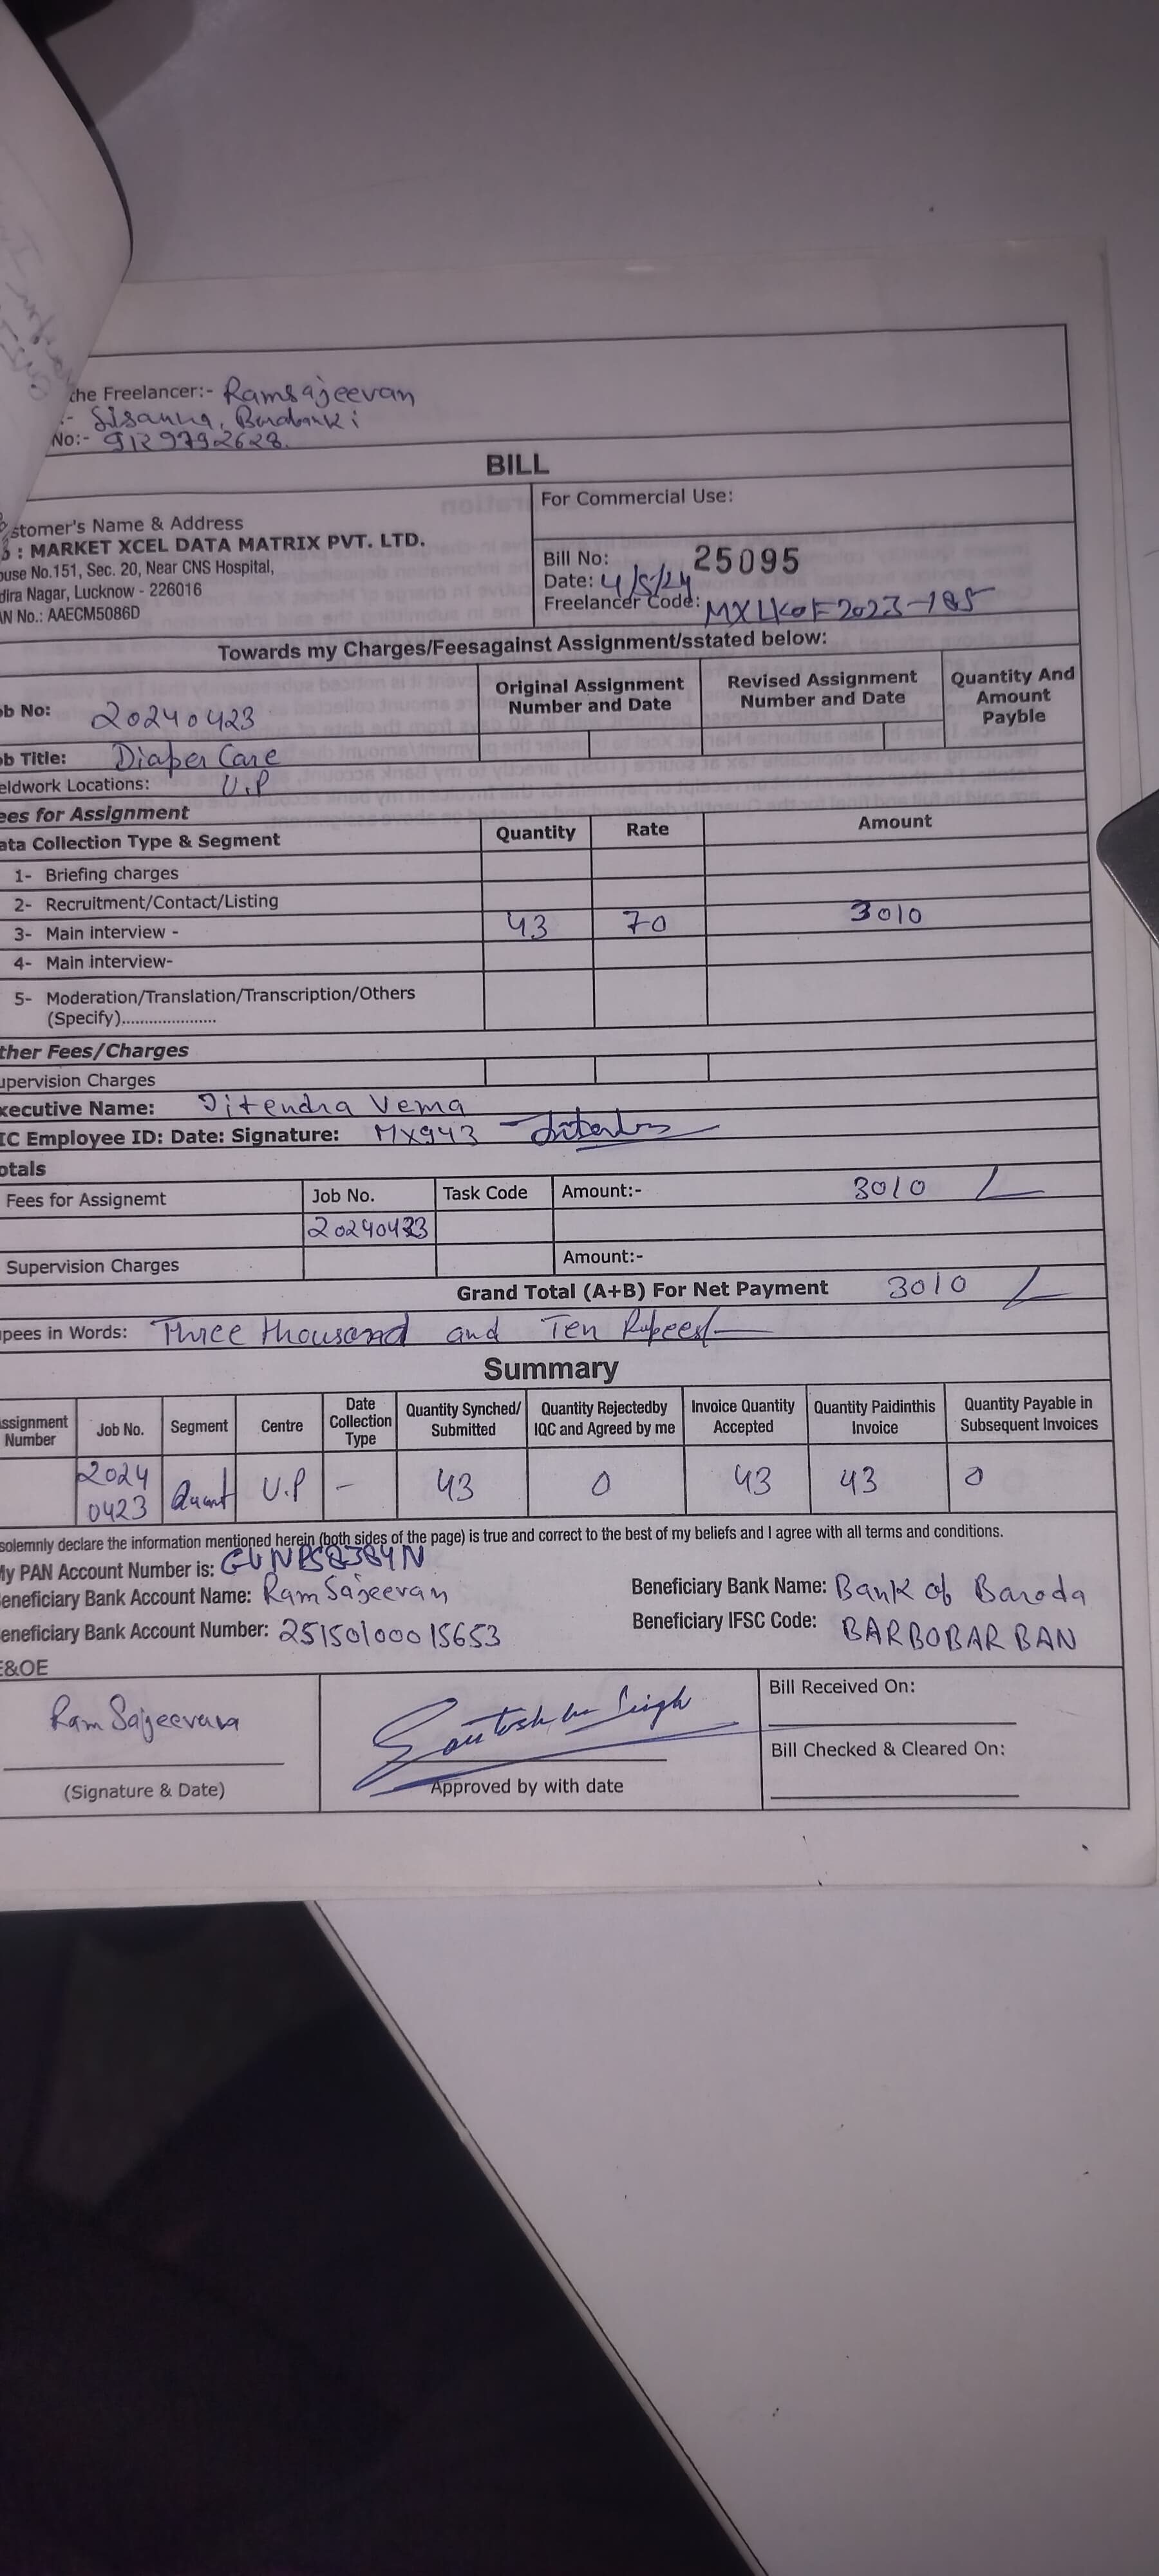 the Freelancer:- Ramsajeevan
:- Barabanki
No:- 9129792628
BILL
stomer's Name & Address
: MARKET XCEL DATA MATRIX PVT. LTD.
ouse No.151, Sec. 20, Near CNS Hospital,
dira Nagar, Lucknow - 226016
AN No.: AAECM5086D
For Commercial Use:
Bill No: 25095
Date: 4/5/24
Freelancer Code: MXLKOF2023-185
Towards my Charges/Feesagainst Assignment/sstated below:
ob No: 20240423
Original Assignment Number and Date
Revised Assignment Number and Date
Quantity And Amount Payble
ob Title: Diaper Care
eldwork Locations: U.P
ees for Assignment
ata Collection Type & Segment Quantity Rate Amount
1- Briefing charges
2- Recruitment/Contact/Listing
3- Main interview - 43 70 3010
4- Main interview-
5- Moderation/Translation/Transcription/Others
(Specify).....................
ther Fees/Charges
upervision Charges
xecutive Name: Jitendra Verma
IC Employee ID: Date: Signature: MX943
otals
Fees for Assignemt Job No. Task Code Amount:- 3010
20240423
Supervision Charges Amount:-
Grand Total (A+B) For Net Payment 3010
pees in Words: Three thousand and Ten Rupees/-
Summary
ssignment Number Job No. Segment Centre Date Collection Type Quantity Synched/ Submitted Quantity Rejectedby IQC and Agreed by me Invoice Quantity Accepted Quantity Paidinthis Invoice Quantity Payable in Subsequent Invoices
2024 0423 Quant U.P - 43 0 43 43 0
solemnly declare the information mentioned herein (both sides of the page) is true and correct to the best of my beliefs and I agree with all terms and conditions.
My PAN Account Number is:
eneficiary Bank Account Name: Ram Sajeevan
Beneficiary Bank Name: Bank of Baroda
eneficiary Bank Account Number: 25150100015653
Beneficiary IFSC Code: BARBOBARBAN
E&OE
Ram Sajeevan
(Signature & Date)
Santosh Singh
Approved by with date
Bill Received On:
Bill Checked & Cleared On: